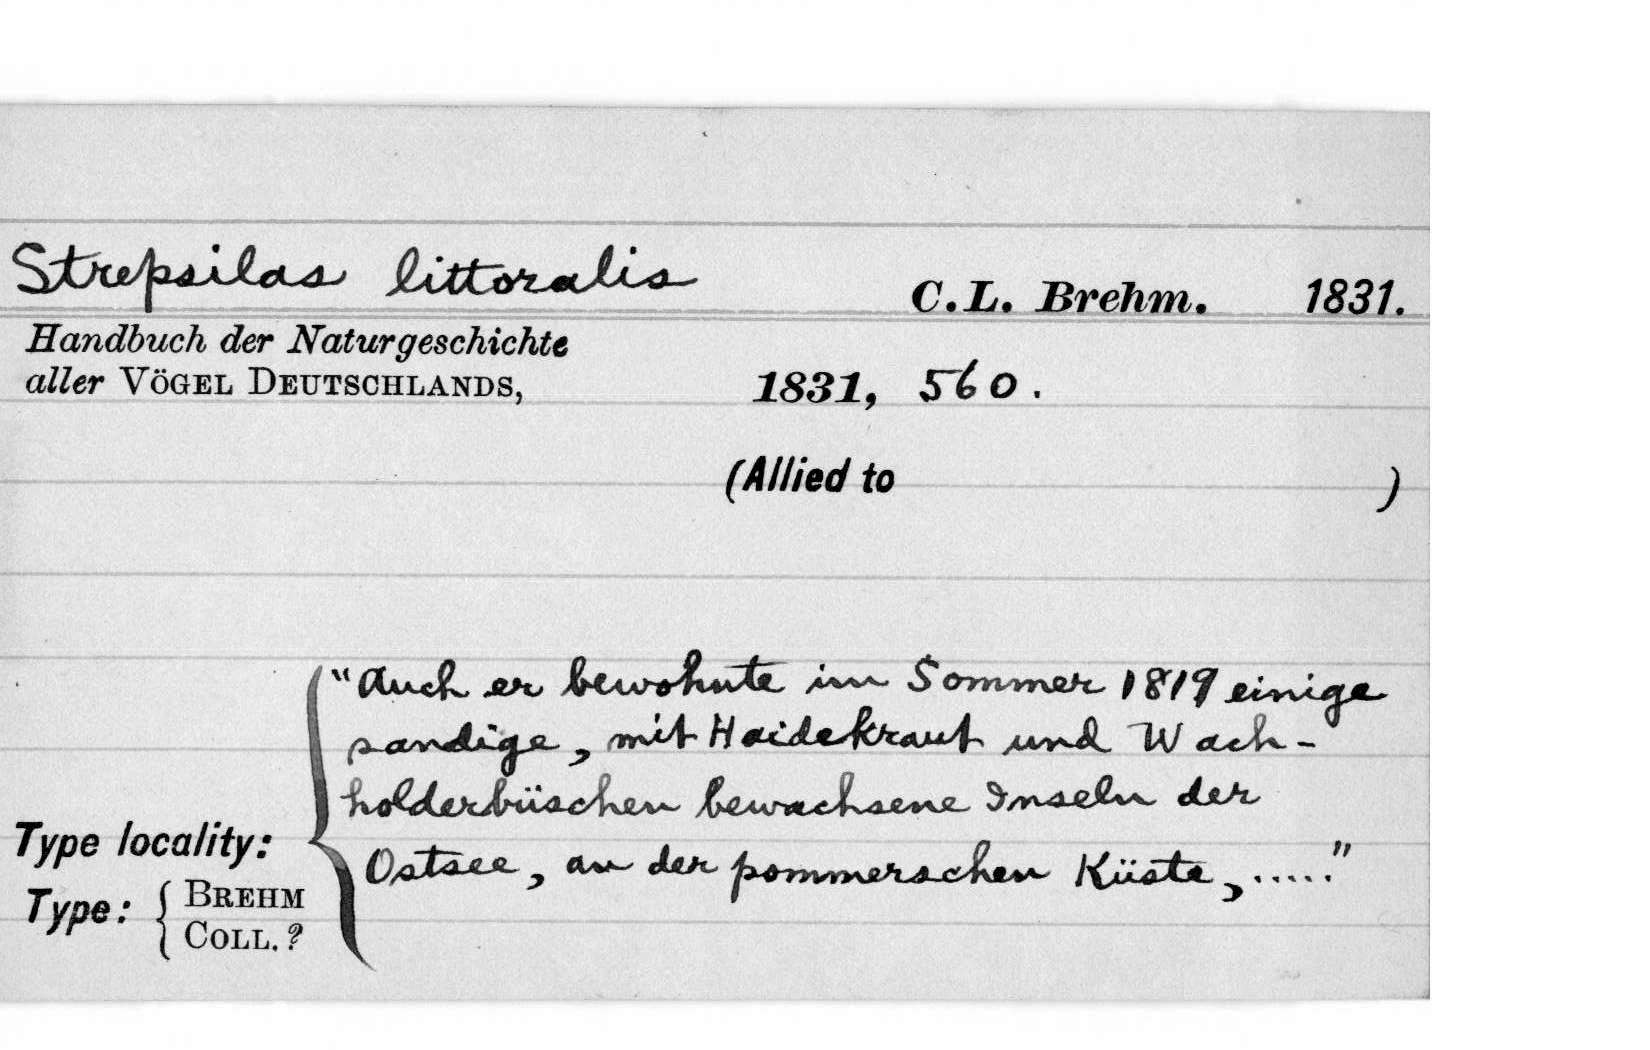 Strepsilas littoralis C.L. Brehm. 1831.
Handbuch der Naturgeschichte
aller VÖGEL DEUTSCHLANDS, 1831, 560.
(Allied to )
"Auch er bewohnte im Sommer 1819 einige
sandige, mit Haidekraut und Wach-
holderbüschen bewachsene Inseln der
Type locality:
Ostsee, an der pommerschen Küste,....."
Type: { BREHM
COLL.?